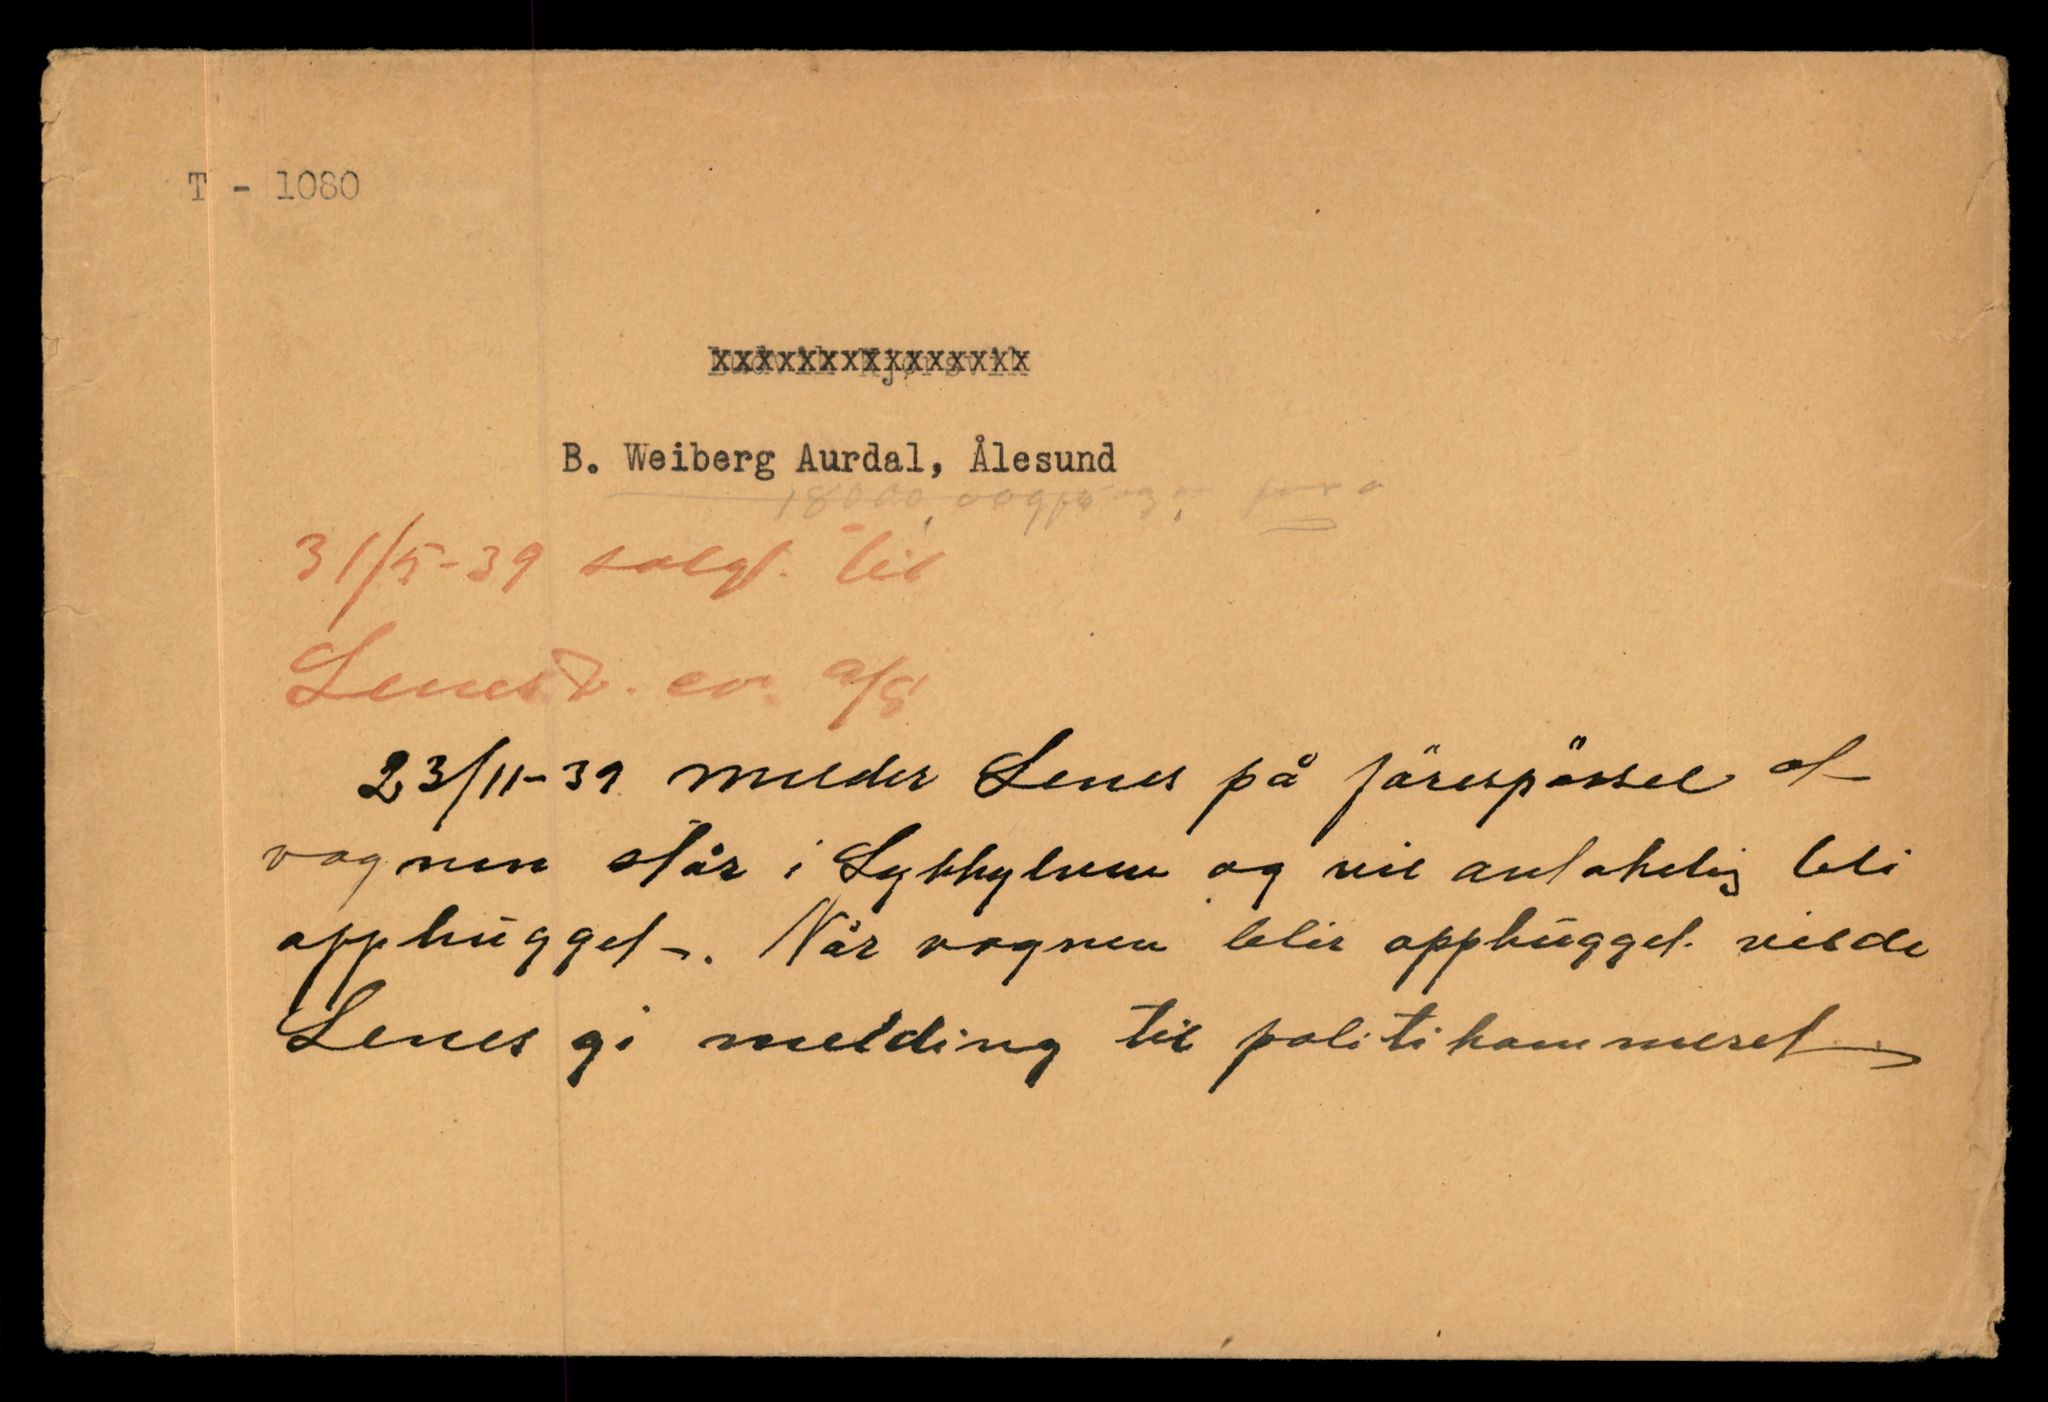 T - 1080
xxxxxxxxxxxxxxx
B. Weiberg Aurdal, Ålesund
31/5-39 solgt til
Lenes & co. A/S
23/11-39 melder Lenes på förespörsel at
vognen står i Sykkylven og vil antakelig bli
opphugget. Når vognen blir opphugget vilde
Lenes gi melding til politikammeret